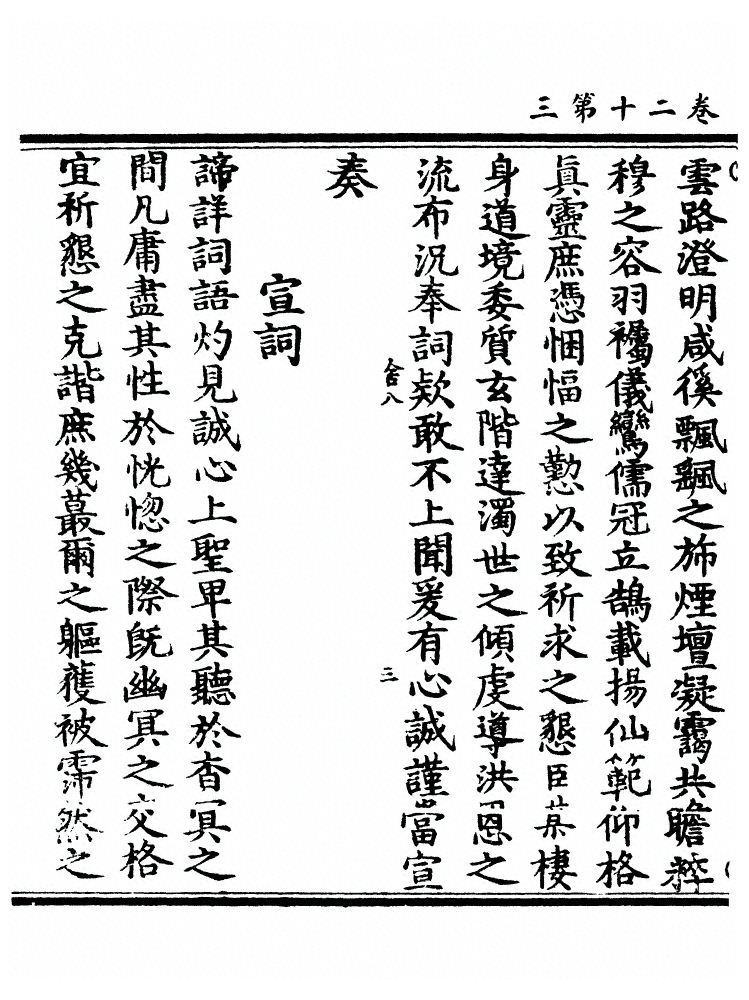 三第十二卷
雲路澄明咸徯飄飄之斾煙壇凝靄共瞻粹
穆之容羽襹儀鸞儒冠立鵠載揚仙範仰格
眞靈庶憑悃愊之懃以致祈求之懇臣某棲
身道境委質玄階達濁世之傾虔導洪恩之
流布況奉詞欵敢不上聞爰有心誠謹當宣
舍八
三
奏
宣詞
諦詳詞語灼見誠心上聖卑其聽於杳冥之
間凡庸盡其性於恍惚之際旣幽冥之交格
宜祈懇之克諧庶幾蕞爾之軀獲被霈然之